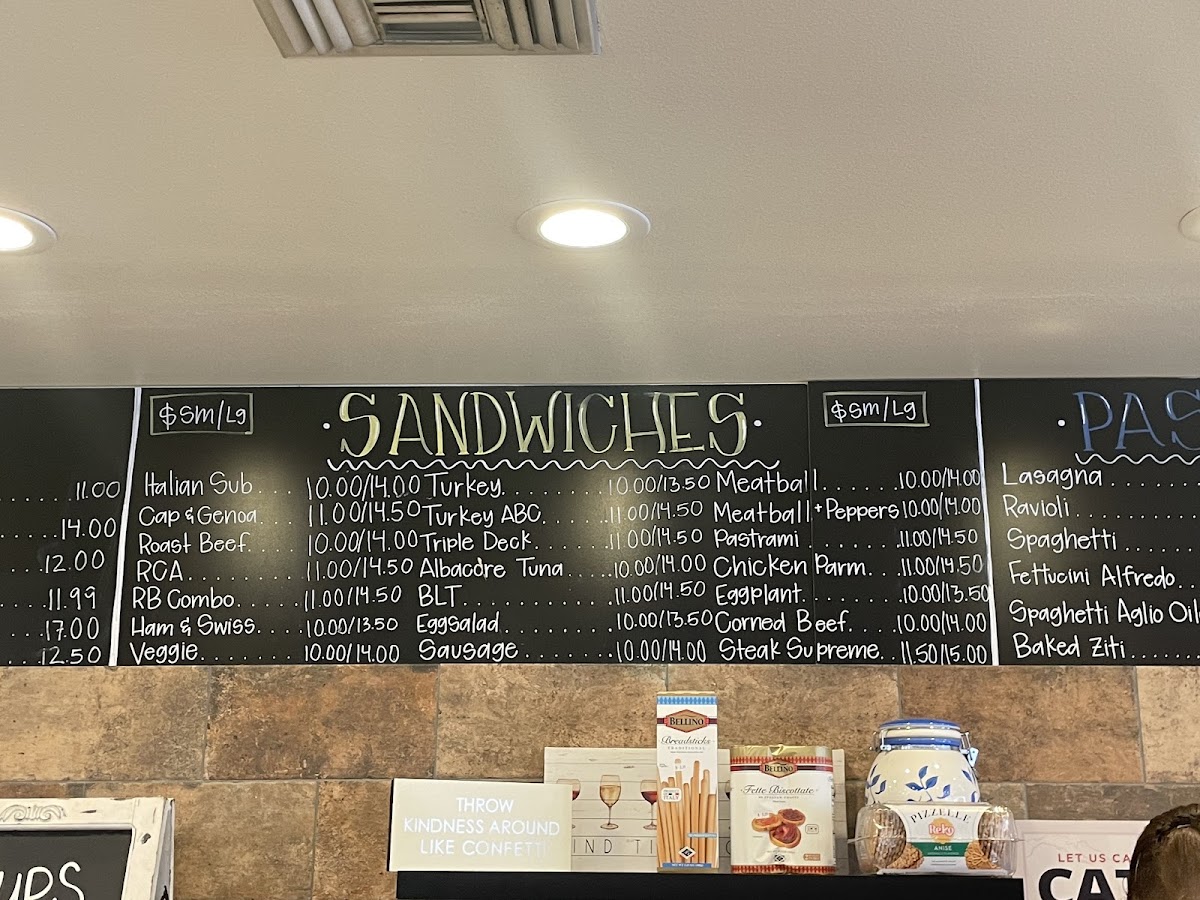 11.00
14.00
12.00
11.99
17.00
12.50
$ Sm/Lg
·SANDWICHES·
$ Sm/Lg
Italian Sub.... 10.00/14.00
Cap & Genoa.... 11.00/14.50
Roast Beef.... 10.00/14.00
RCA........ 11.00/14.50
RB Combo...... 11.00/14.50
Ham & Swiss.... 10.00/13.50
Veggie....... 10.00/14.00
Turkey......... 10.00/13.50
Turkey ABC...... 11.00/14.50
Triple Deck...... 11.00/14.50
Albacore Tuna.... 10.00/14.00
BLT............ 11.00/14.50
Eggsalad........ 10.00/13.50
Sausage........ 10.00/14.00
Meatball...... 10.00/14.00
Meatball + Peppers 10.00/14.00
Pastrami....... 11.00/14.50
Chicken Parm... 11.00/14.50
Eggplant....... 10.00/13.50
Corned Beef.... 10.00/14.00
Steak Supreme.. 11.50/15.00
· PAS
Lasagna
Ravioli
Spaghetti
Fettucini Alfredo
Spaghetti Aglio Oil
Baked Ziti
THROW
KINDNESS AROUND
LIKE CONFETTI
BELLINO
Breadsticks
TRADITIONAL
BELLINO
Fette Biscottate
PIZZELLE
Reko
ANISE
LET US CA
CAT
UPS